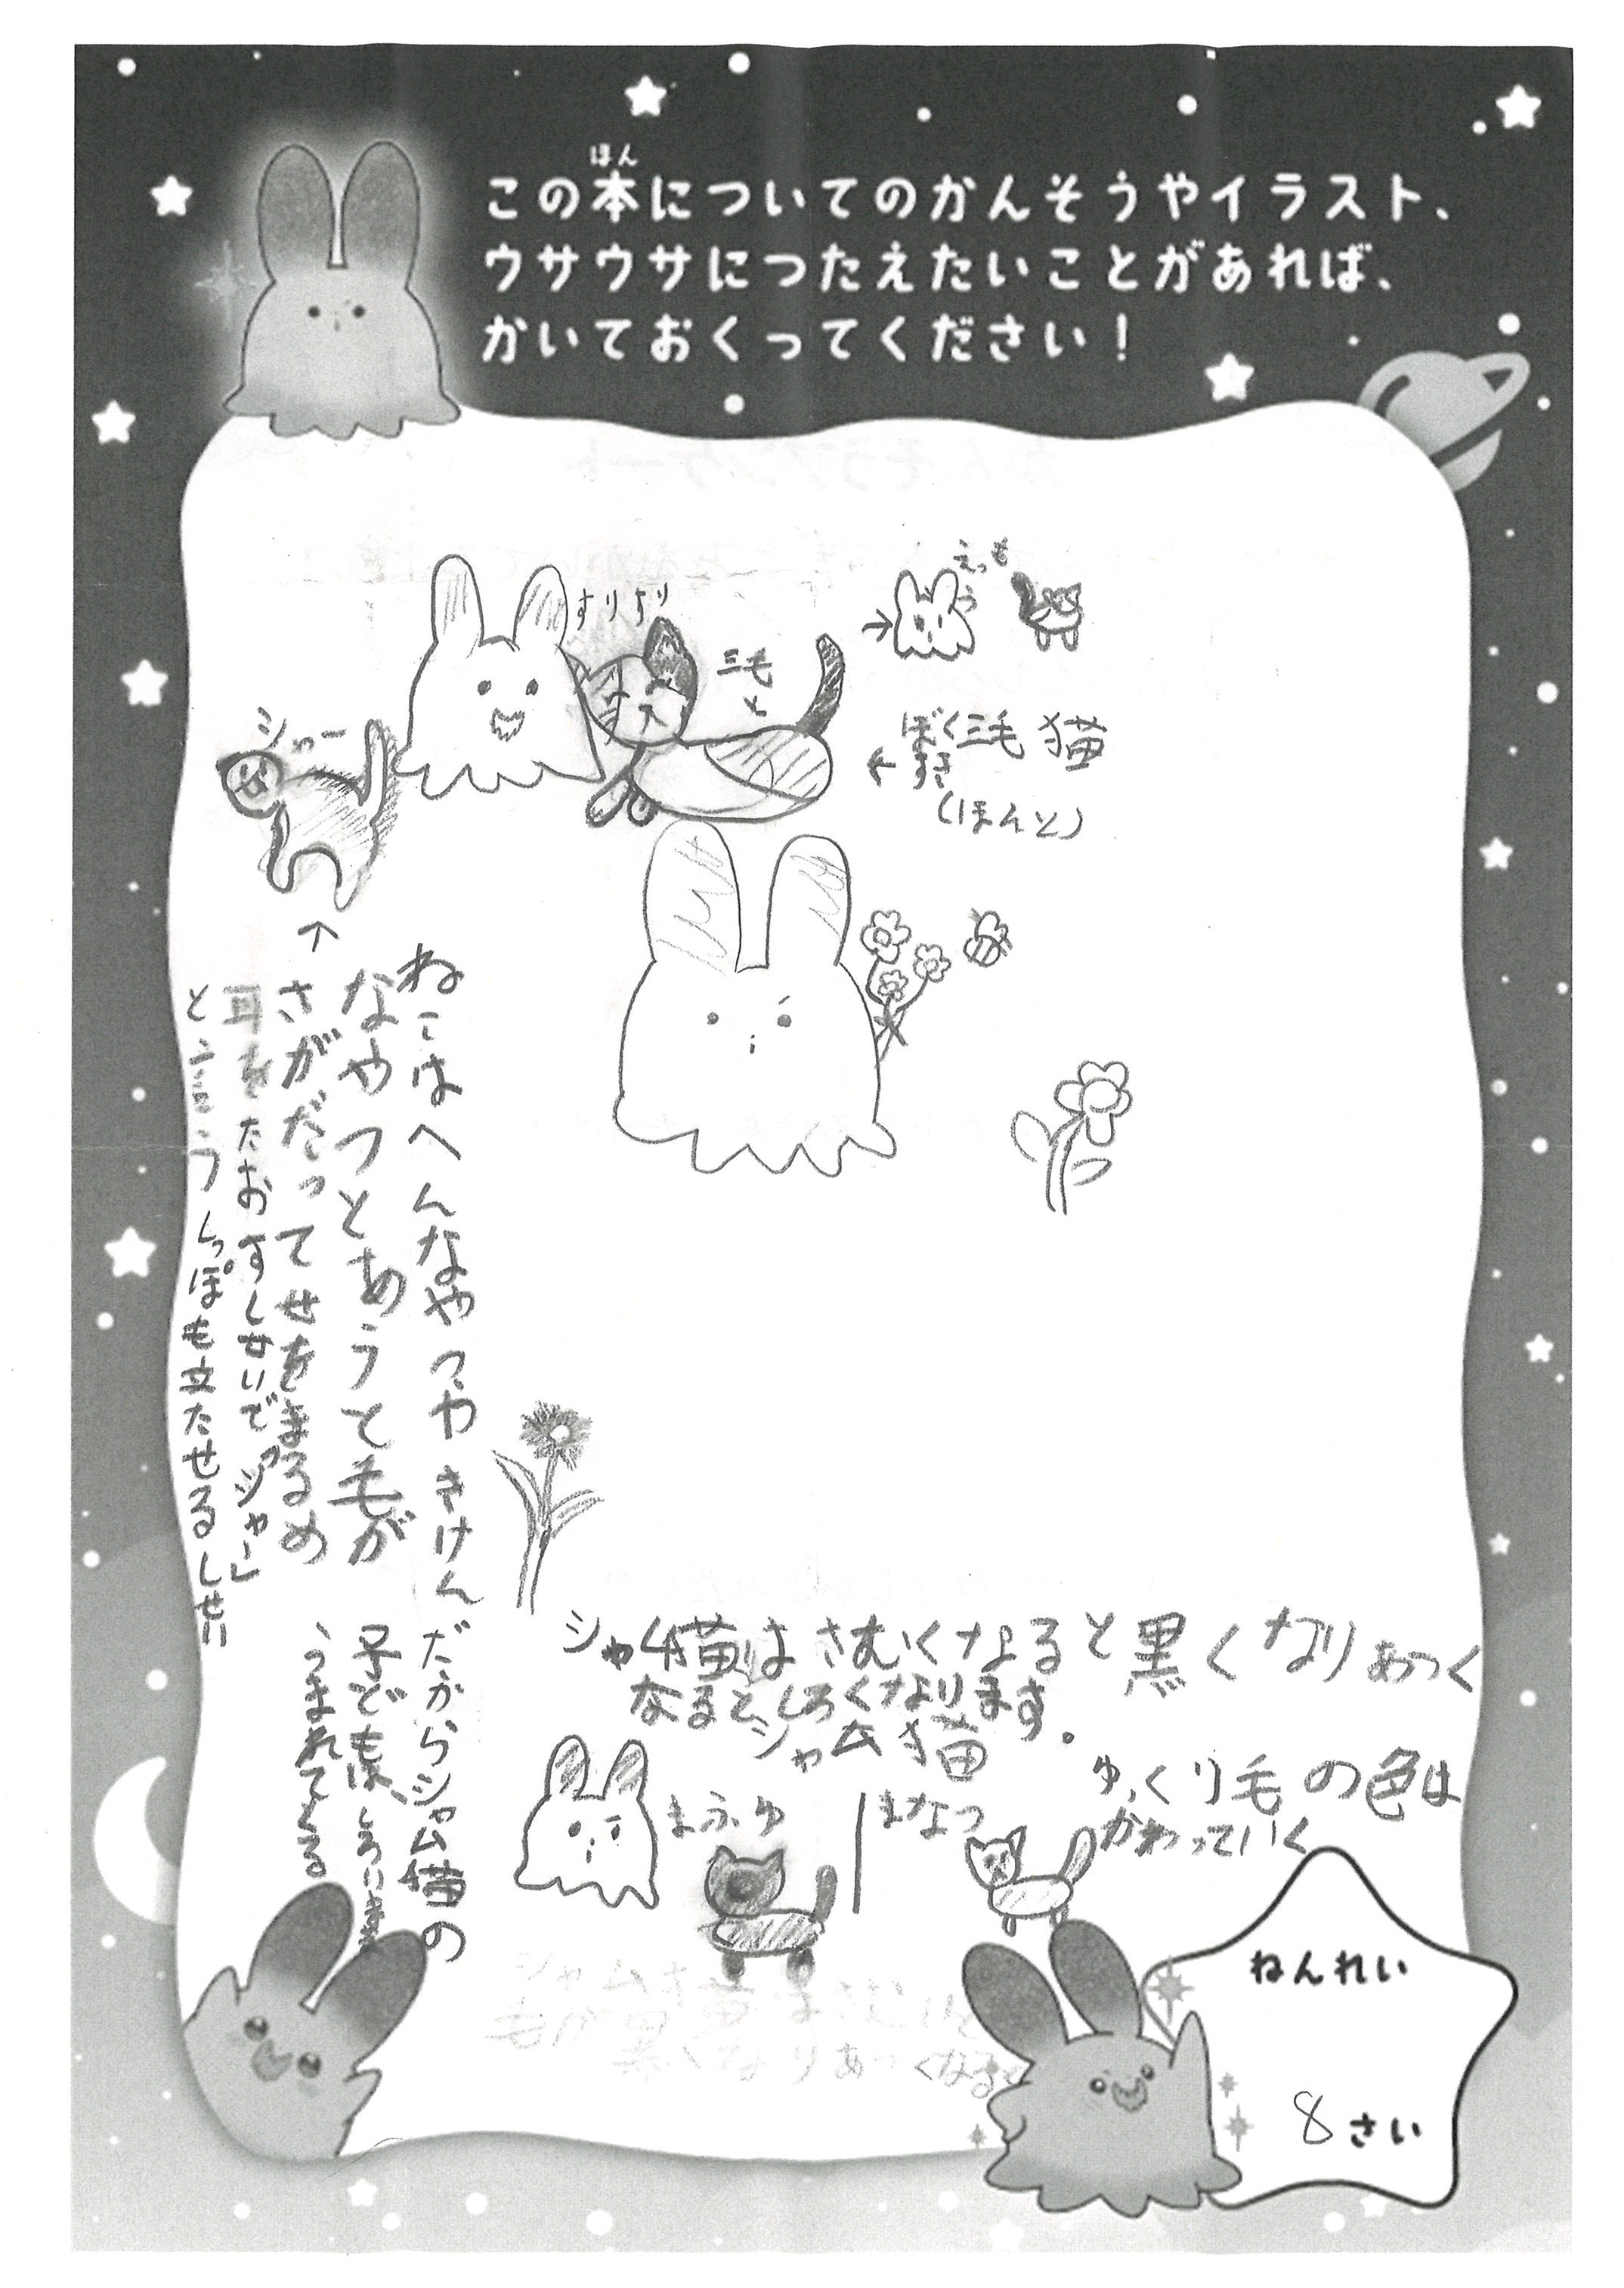 ほん
この本についてのかんそうやイラスト、
ウサウサにつたえたいことがあれば、
かいておくってください!
すりすり
三毛
えっも
シャー
ぼく三毛猫
すき
(ほんと)
ねこはへんなやつやきけん
なやつとあうと毛が
さがだってせをまるめ
耳をたおすしせいで「シャー」
と言うしっぽも立たせるしせい
シャム猫はさむくなると黒くなりあつく
なるとしろくなります。
シャム猫
ゆっくり毛の色は
かわっていく
まふゆ
まなつ
だからシャム猫の
子どもは、しろいまま
うまれてくる
ねんれい
8さい